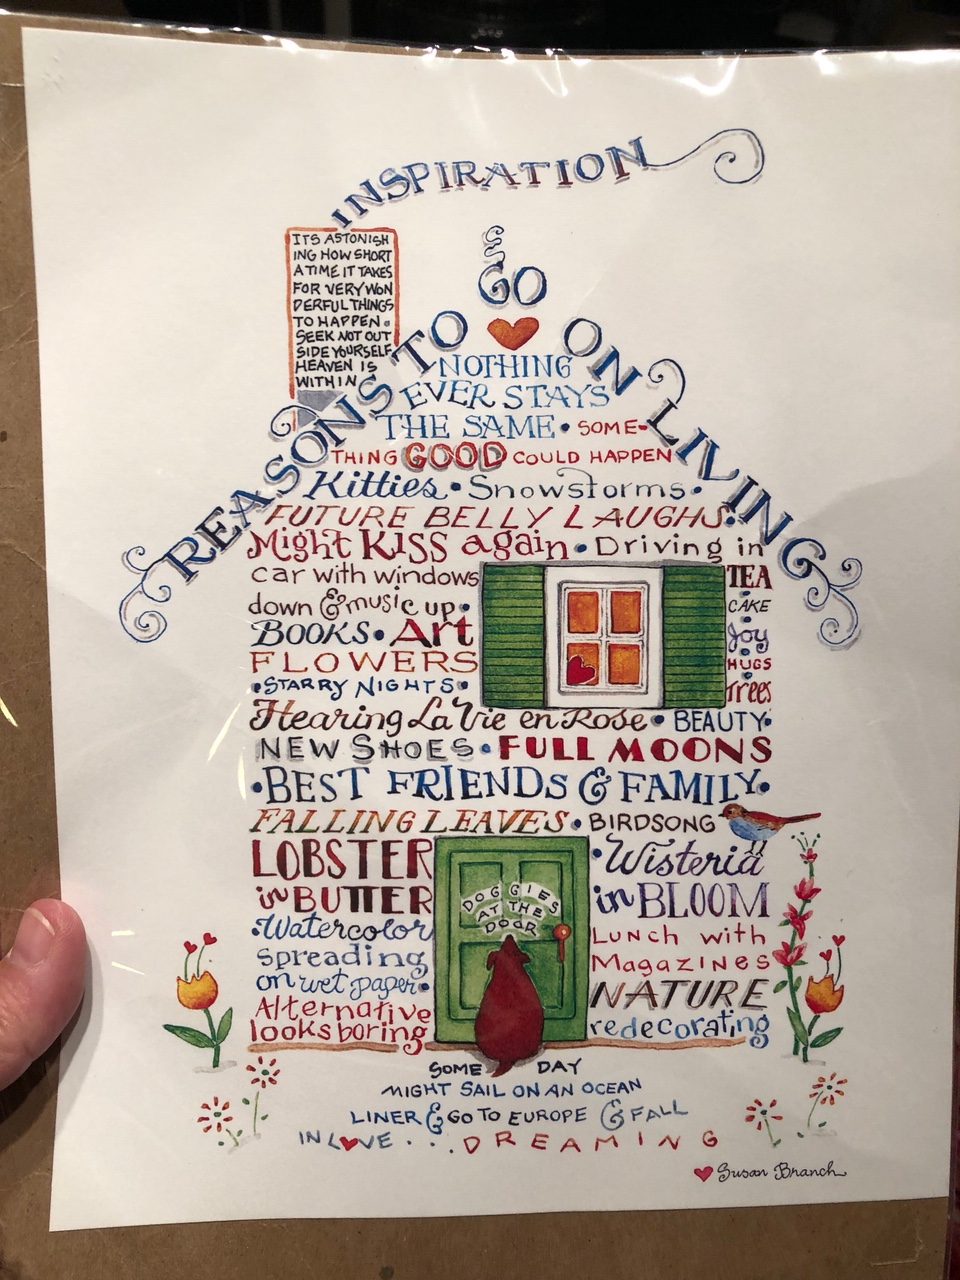 INSPIRATION
ITS ASTONISH
ING HOW SHORT
A TIME IT TAKES
FOR VERY WON
DERFUL THINGS
TO HAPPEN.
SEEK NOT OUT
SIDE YOURSELF
HEAVEN IS
WITHIN
REASONS TO GO ON LIVING
NOTHING
EVER STAYS
THE SAME • SOME-
THING GOOD COULD HAPPEN
Kitties • Snowstorms •
FUTURE BELLY LAUGHS •
Might KISS again • Driving in
car with windows
down & music up •
BOOKS • Art
FLOWERS
• STARRY NIGHTS •
TEA
CAKE
Joy
HUGS
Trees
Hearing La Vie en Rose • BEAUTY •
NEW SHOES • FULL MOONS
• BEST FRIENDS & FAMILY •
FALLING LEAVES • BIRDSONG
LOBSTER
in BUTTER
• Watercolor
Spreading
on wet paper •
Alternative
looks boring
DOGGIES
AT THE
DOOR
• Wisteria
in BLOOM
LUNCH with
Magazines
NATURE
redecorating
SOME DAY
MIGHT SAIL ON AN OCEAN
LINER & GO TO EUROPE & FALL
IN LOVE . . . DREAMING
Susan Branch